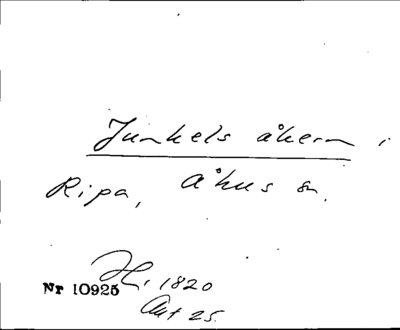 Junkels åkern i
Ripa, Åhus sn.
Hi, 1820
Nr 10925
Akt 25.